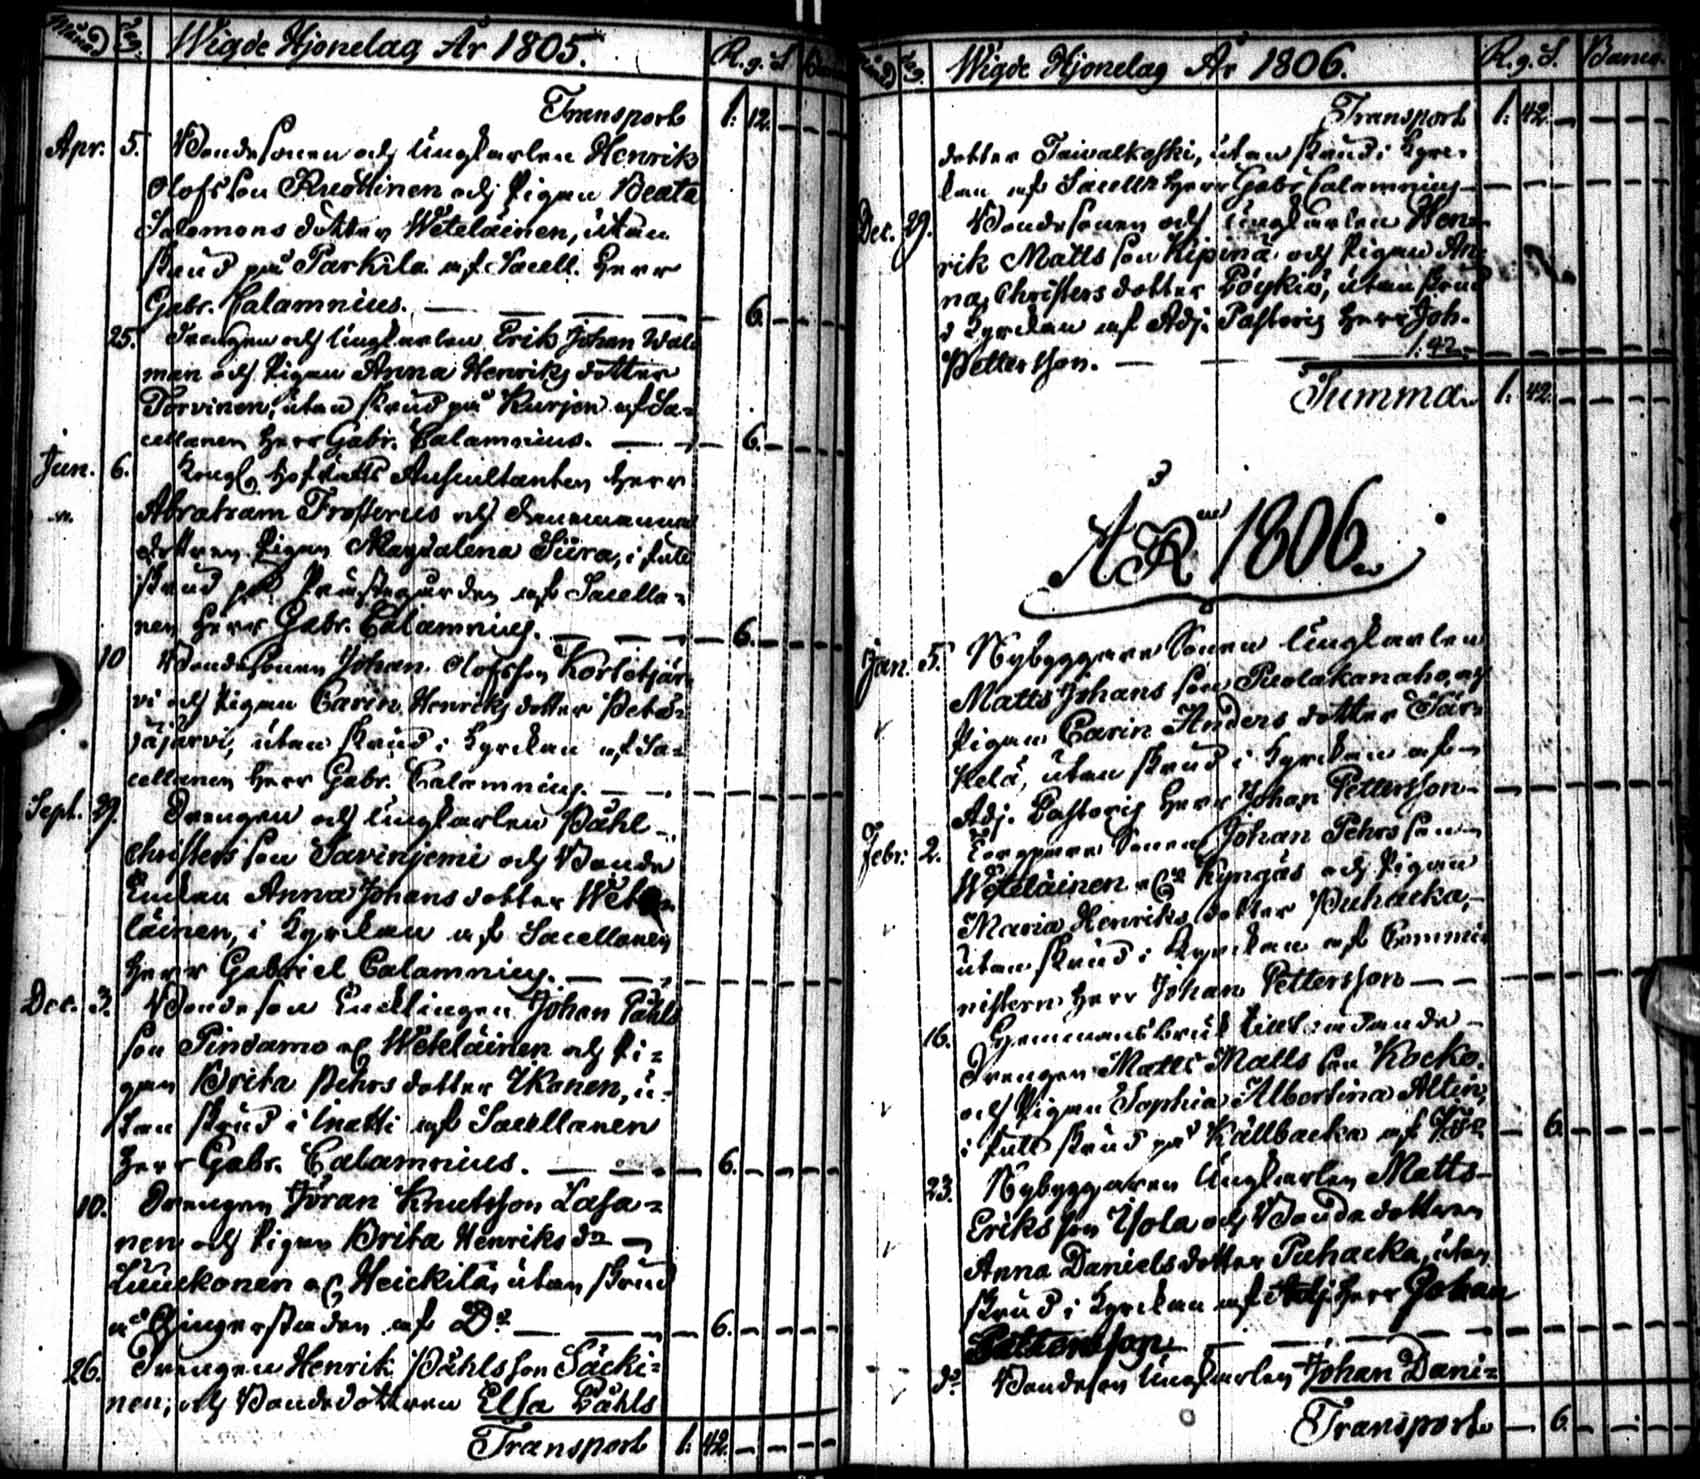 Månad Dag Wigde Hjonelag År 1805. R.g. S Banco
Transport 1: 12.
Apr. 5. Bondesonen och Ungkarlen Henrik
Olofsson Ruottinen och Pigan Beata
Salomons dotter Weteläinen, utan
skrud på Parkila af Sacell. Herr
Gabr. Calamnius. 6.
25. Drengen och Ungkarlen Erik Johan Wald
man och Pigan Anna Henriks dotter
Torvinen, utan skrud på Kurjen af Sa-
cellanen Herr Gabr. Calamnius. 6.
Jun. 6. Kongl. Hofrätts Auscultanten Herr
Abraham Frosterus och
dottren Pigan Magdalena Siira, i full
skrud på Prästegården af Sacella-
nen Herr Gabr. Calamnius. 6.
10 Bondesonen Johan Olofsson Kortetjär
vi och Pigan Carin Henriks dotter Petä-
jäjärvi, utan skrud i Kyrckan af Sa-
cellanen Herr Gabr. Calamnius.
Sept. 29. Drengen och Ungkarlen Påhl
Christers son Savinjemi och Bonde
Enckan Anna Johans dotter Wete
läinen, i Kyrckan af Sacellanen
Herr Gabriel Calamnius.
Dec. 3. Bondeson Encklingen Johan Påhls
son Pindamo el. Weteläinen och Pi-
gan Brita Pehrs dotter Ikonen, u-
tan skrud i Unatti af Sacellanen
Herr Gabr. Calamnius. 6.
10. Drengen Jöran Knutsson Lasa-
nen och Pigan Brita Henriks dr
Luuckonen el. Heickilä, utan skrud
af Do 6.
26. Drengen Henrik Påhlsson Säcki-
nen, och Bondedottren Elsa Påhls
Transport 1: 42.
Månad Dag Wigde Hjonelag År 1806. R.g. S. Banco.
Transport 1: 42.
dotter Taivalkoski, utan skrud i Kyrc-
kan af Sacell. Herr Gabr. Calamnius
Dec. 29. Bondesonen och Ungkarlen Hen-
rik Matts son Kipinä och Pigan An-
na Christers dotter Pöykiö, utan skrud
i Kyrckan af Adj. Pastoris Herr Joh.
Pettersson. 1:42.
Summa 1: 42.
ÅR 1806.
Jan. 5. Nybyggare Sonen Ungkarlen
Matts Johans son Puolakanaho, och
Pigan Carin Anders dotter Sär-
kelä, utan skrud i Kyrckan af
Adj. Pastoris Herr Johan Pettersson
Febr. 2. Torppare Sonen Johan Pehrs son
Weteläinen el. Kyngäs och Pigan
Maria Henriks dotter Puhacka,
utan skrud i Kyrckan af Commi
nistern Herr Johan Pettersson
16. Hemmansbruk
Drengen Matts Matts son Kocko.
och Pigan Sophia Albertina Alten,
i full skrud på Källbacka af 6.
23. Nybyggaren Ungkarlen Matts
Eriks son Ylola och Bonde dottren
Anna Daniels dotter Puhacka, utan
skrud i Kyrckan af Adj. Herr Johan
Pettersson
do Bondeson Ungkarlen Johan Dani-
Transport 6.